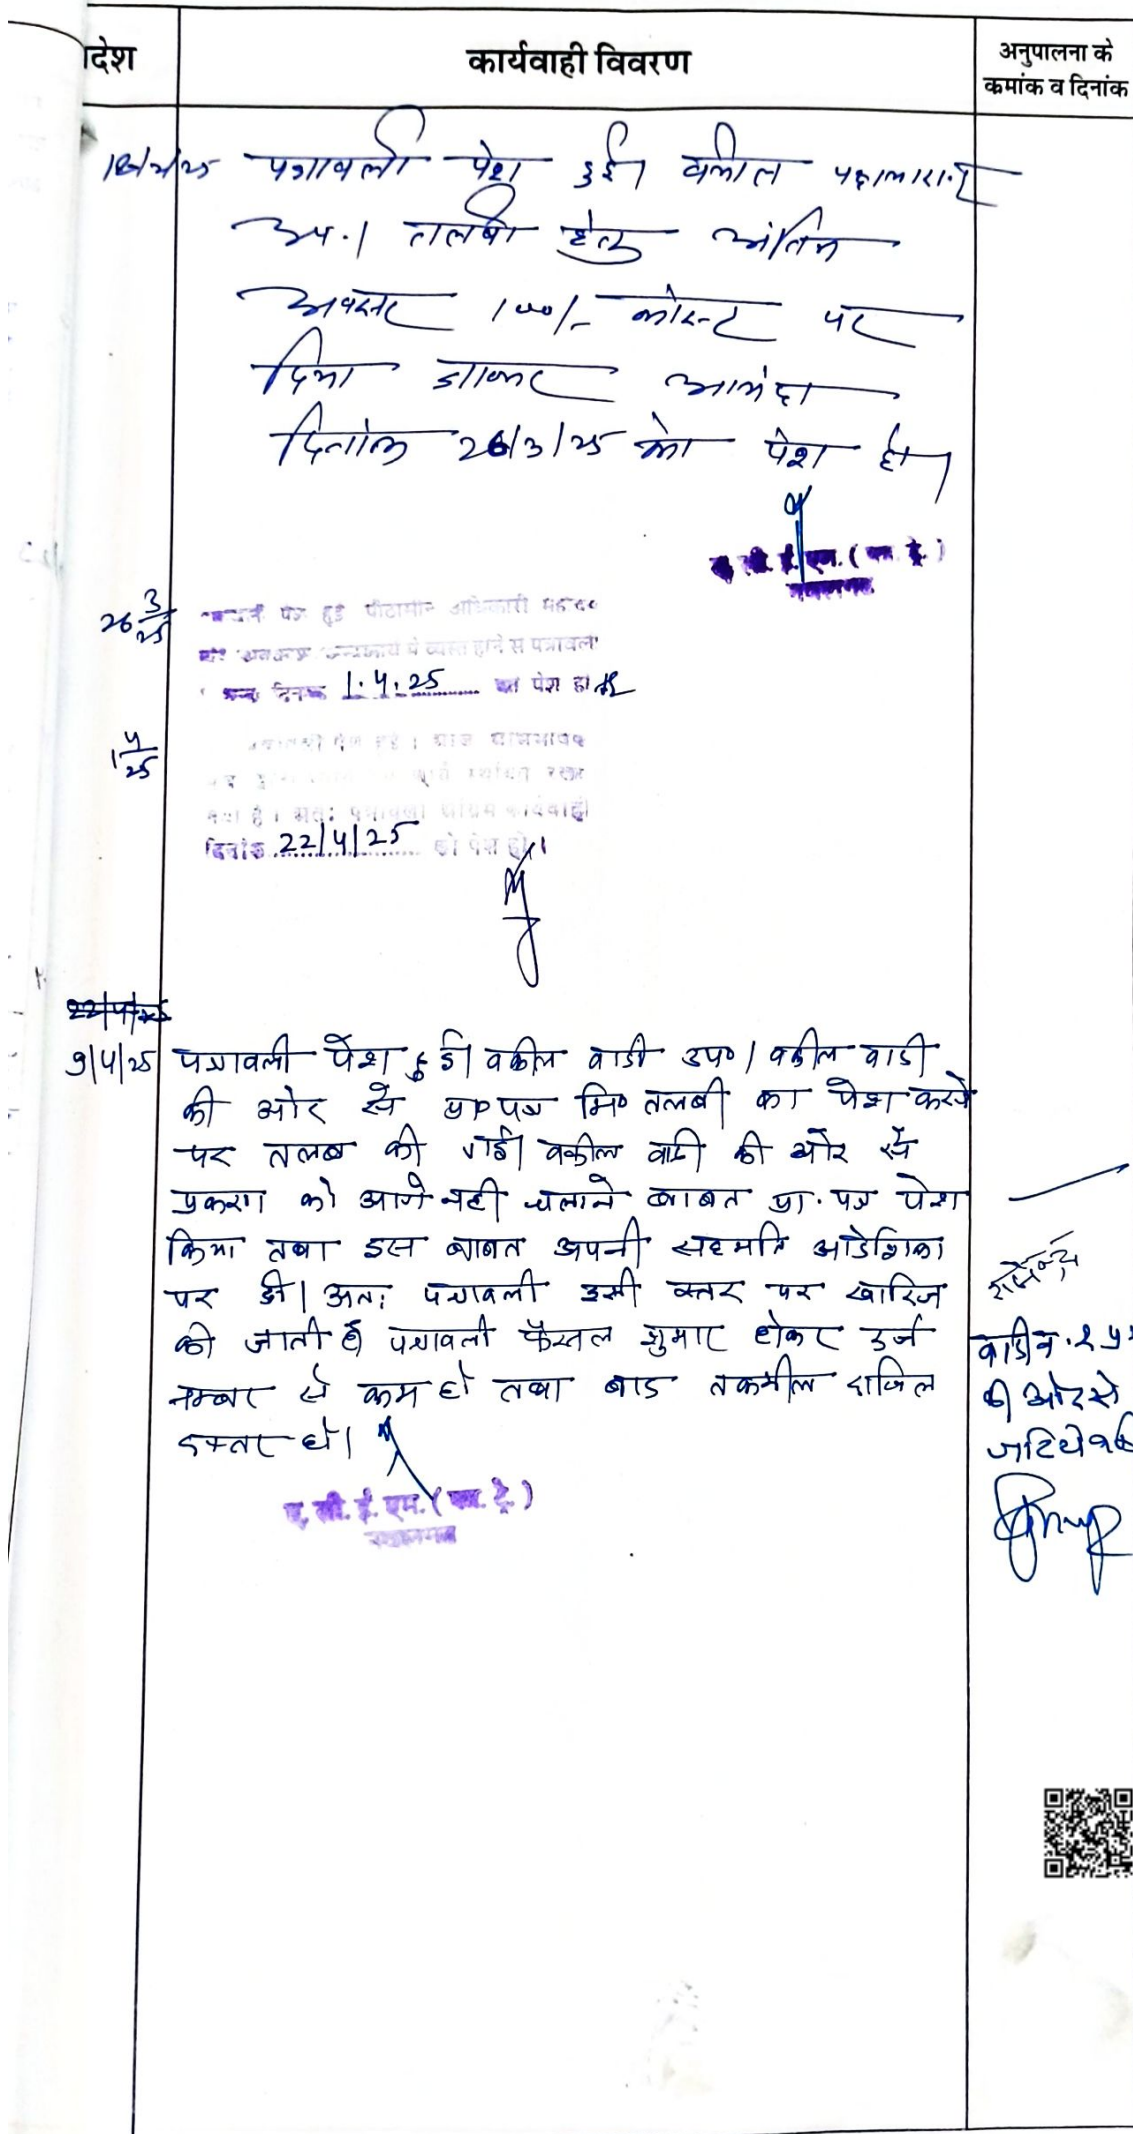 देश
कार्यवाही विवरण
अनुपालना के
कमांक व दिनांक
पत्रावली पेश हुई। वकील पक्षकारान
उप.। तलबी हेतु अंतिम
अवसर 100/- कोस्ट पर
दिया जाकर आयंदा
दिनांक 26/3/25 को पेश हो।
ए. सी. ई. एम. (फा. ट्रे.)
26 3/25
पेश हुई पीठासीन अधिकारी
व्यस्त होने से पत्रावली
दिनांक 1.4.25 को पेश हो
1 4/25
दिनांक 22/4/25 को पेश हो।
22/4/25
9/4/25 पत्रावली पेश हुई। वकील वादी उप० । वकील वादी
की ओर से प्रा० पत्र मि० तलबी का पेश करने
पर तलब की गई। वकील वादी की ओर से
प्रकरण को आगे नही चलाने बाबत प्रा. पत्र पेश
किया तथा इस बाबत अपनी सहमति आदेशिका
पर दी। अतः पत्रावली इसी स्तर पर खारिज
की जाती है। पत्रावली फैसल शुमार होकर दर्ज
नम्बर से कम हो तथा बाद तकमील दाखिल
दफ्तर हो।
ए. सी. ई. एम. (फा. ट्रे.)
वादी न. 2
की ओर से
जरिये